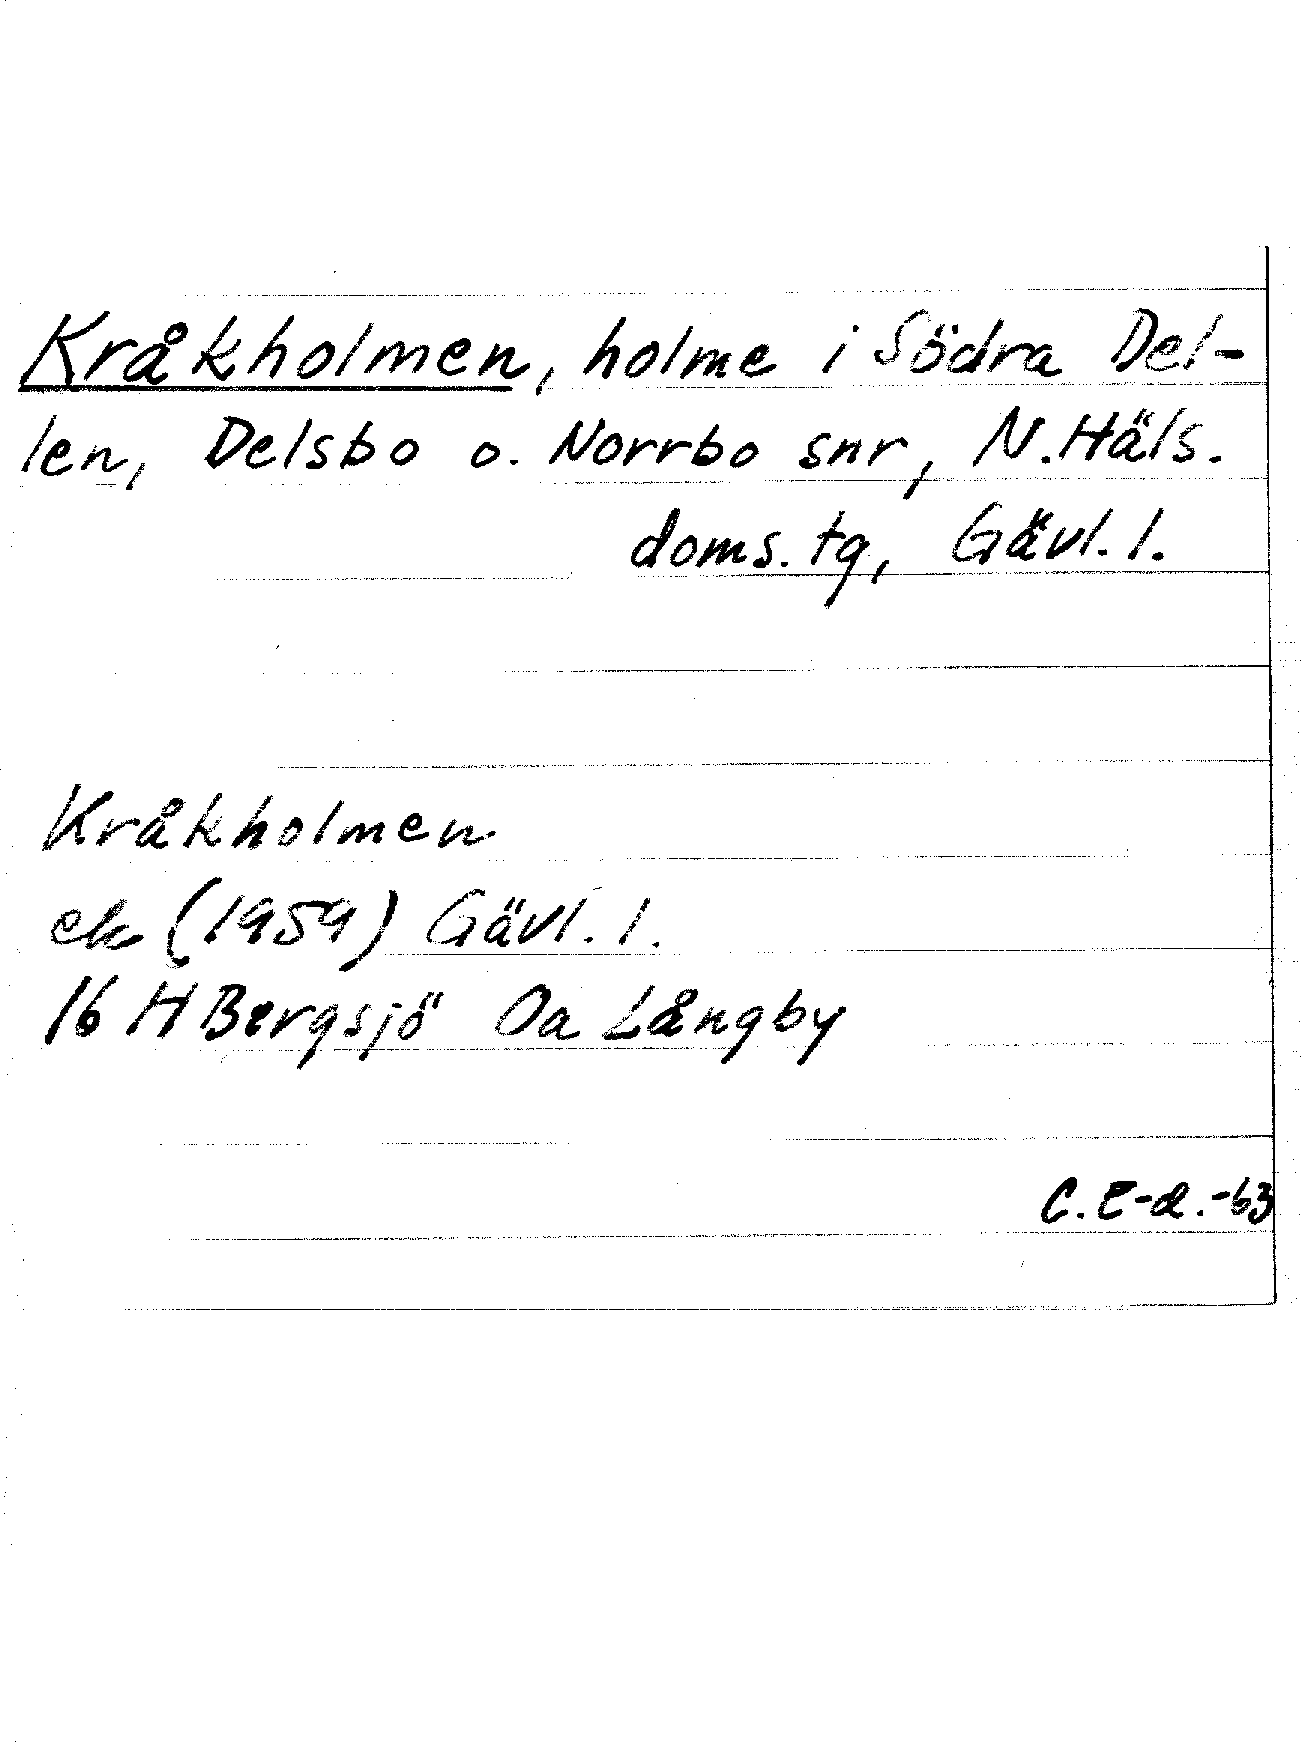 Kråkholmen, holme i Södra Del-
len, Delsbo o. Norrbo snr, N.Häls.
doms. tg, Gävl. l.
Kråkholmen
ek (1959) Gävl. l.
16 H Bergsjö Oa Långby
C. E-d. -63